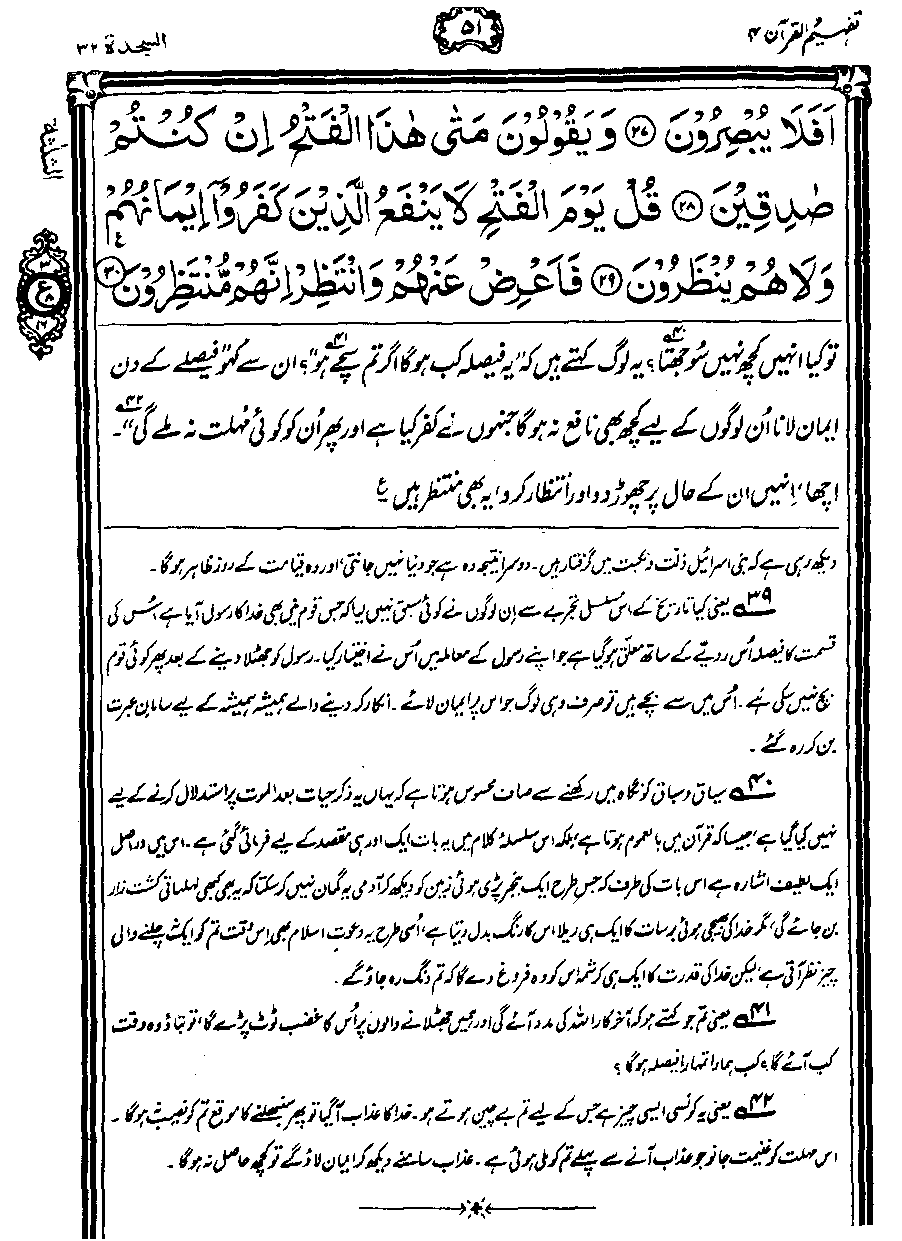 تفہیم القرآن ۴
۵۱
السجدۃ ۳۲
اَفَلَا يُبْصِرُوْنَ ﴿۲۷﴾ وَيَقُوْلُوْنَ مَتٰى هٰذَا الْفَتْحُ اِنْ كُنْتُمْ
صٰدِقِيْنَ ﴿۲۸﴾ قُلْ يَوْمَ الْفَتْحِ لَا يَنْفَعُ الَّذِيْنَ كَفَرُوْٓا اِيْمَانُهُمْ
وَلَا هُمْ يُنْظَرُوْنَ ﴿۲۹﴾ فَاَعْرِضْ عَنْهُمْ وَانْتَظِرْ اِنَّهُمْ مُّنْتَظِرُوْنَ ﴿۳۰﴾
تو کیا انہیں کچھ نہیں سُوجھتا؟۴۰ یہ لوگ کہتے ہیں کہ ”یہ فیصلہ کب ہوگا اگر تم سچے ہو“؟۴۱ ان سے کہو ”فیصلے کے دن
ایمان لانا اُن لوگوں کے لیے کچھ بھی نافع نہ ہوگا جنہوں نے کفر کیا ہے اور پھر اُن کو کوئی مُہلت نہ ملے گی“۔۴۲
اچھا، اِنہیں ان کے حال پر چھوڑ دو اور انتظار کرو، یہ بھی منتظر ہیں ع
دیکھ رہی ہے کہ بنی اسرائیل ذلت و نکبت میں گرفتار ہیں۔ دوسرا نتیجہ وہ ہے جو دنیا نہیں جانتی، اور وہ قیامت کے روز ظاہر ہوگا۔
۳۹ یعنی کیا تاریخ کے اس مسلسل تجربے سے اِن لوگوں نے کوئی سبق نہیں لیا کہ جس قوم میں بھی خدا کا رسول آیا ہے اُس کی
قسمت کا فیصلہ اُس رویّے کے ساتھ معلق ہوگیا ہے جو اپنے رسول کے معاملہ میں اُس نے اختیار کیا۔ رسول کو جھٹلا دینے کے بعد پھر کوئی قوم
بچ نہیں سکی ہے۔ اُس میں سے بچے ہیں تو صرف وہی لوگ جو اس پر ایمان لائے۔ انکار کر دینے والے ہمیشہ ہمیشہ کے لیے سامانِ عبرت
بن کر رہ گئے۔
۴۰ سیاق و سباق کو نگاہ میں رکھنے سے صاف محسوس ہوتا ہے کہ یہاں یہ ذکر حیات بعد الموت پر استدلال کرنے کے لیے
نہیں کیا گیا ہے، جیسا کہ قرآن میں بالعموم ہوتا ہے، بلکہ اس سلسلۂ کلام میں یہ بات ایک اور ہی مقصد کے لیے فرمائی گئی ہے۔ اس میں دراصل
ایک لطیف اشارہ ہے اس بات کی طرف کہ جس طرح ایک بنجر پڑی ہوئی زمین کو دیکھ کر آدمی یہ گمان نہیں کر سکتا کہ یہ بھی کبھی لہلہاتی کشت زار
بن جائے گی، مگر خدا کی بھیجی ہوئی برسات کا ایک ہی ریلا اس کا رنگ بدل دیتا ہے، اُسی طرح یہ دعوتِ اسلام بھی اِس وقت تم کو ایک نہ چلنے والی
چیز نظر آتی ہے، لیکن خدا کی قدرت کا ایک ہی کرشمہ اس کو وہ فروغ دے گا کہ تم دنگ رہ جاؤ گے۔
۴۱ یعنی تم جو کہتے ہو کہ آخرکار اللہ کی مدد آئے گی اور ہمیں جھٹلانے والوں پر اُس کا غضب ٹوٹ پڑے گا، تو بتاؤ وہ وقت
کب آئے گا؟ کب ہمارا تمہارا فیصلہ ہوگا؟
۴۲ یعنی یہ کونسی ایسی چیز ہے جس کے لیے تم بے چین ہوتے ہو۔ خدا کا عذاب آگیا تو پھر سنبھلنے کا موقع تم کو نصیب نہ ہوگا۔
اس مہلت کو غنیمت جانو جو عذاب آنے سے پہلے تم کو ملی ہوئی ہے۔ عذاب سامنے دیکھ کر ایمان لاؤ گے تو کچھ حاصل نہ ہوگا۔